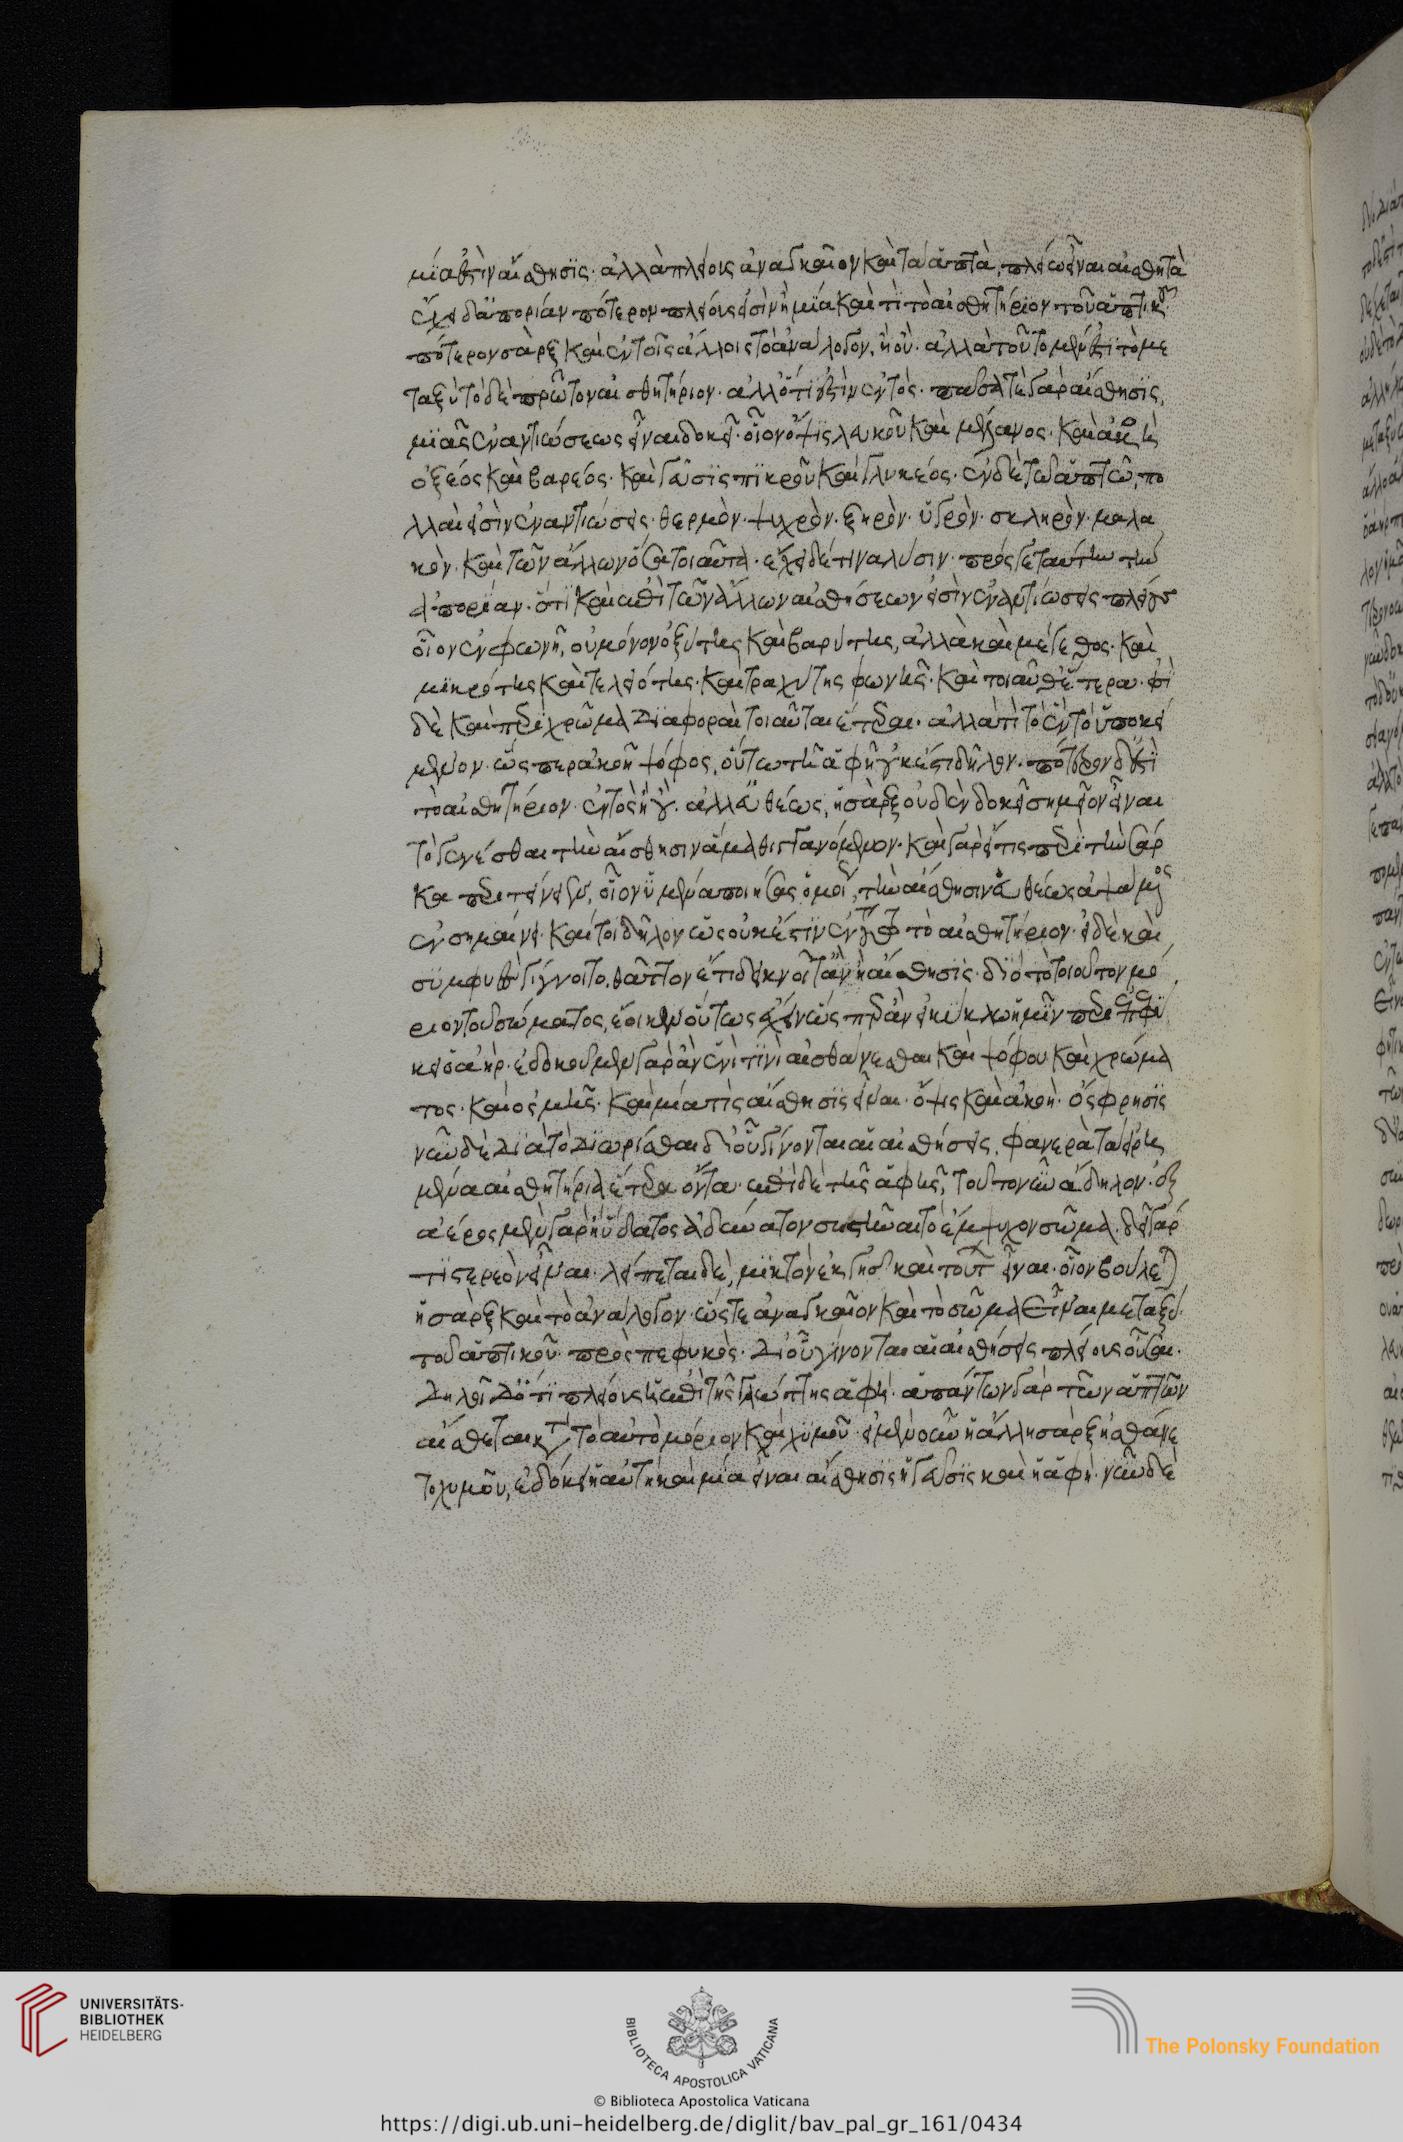 μία ἐστὶν αἴσθησϊς· ἀλλὰ πλείους ἀναγκαῖον καὶ τὰ ἁπτὰ, πλείω εἶναι αἰσθητὰ
ἔχει δ' ἀπορίαν πότερον πλείους εἰσὶν ἢ μϊα καὶ τί τὸ αἰσθητήριον τοῦ ἁπτικοῦ
πότερον σὰρξ καὶ ἐν τοῖς ἄλλοις τὸ ἀνάλογον, ἢ οὔ· ἀλλὰ τοῦτο μέν ἐστι τὸ με
ταξὺ τὸ δὲ πρῶτον αἰσθητήριον· ἄλλό τί ἐστιν ἐντός· πᾶσά τε γὰρ αἴσθησϊς,
μϊᾶς ἐναντιώσεως εἶναι δοκεῖ· οἷον ὄψϊς λευκοῦ καὶ μέλανος· καὶ ἀκοὴ
ὀξέος καὶ βαρέος· καὶ γεῦσϊς πϊκροῦ καὶ γλυκέος· ἐν δὲ τῷ ἁπτῷ, πο
λλαὶ εἰσὶν ἐναντιώσεις· θερμὸν· ψυχρὸν· ξηρὸν· ὑγρὸν· σκληρὸν· μαλα
κὸν· καὶ τῶν ἄλλων ὅσα τοιαῦτα· ἔχει δέ τινα λύσιν πρός γε ταύτην τὴν
ἀπορίαν· ὅτϊ καὶ ἐπὶ τῶν ἄλλων αἰσθήσεων εἰσὶν ἐναντιώσεις πλείους
οἷον ἐν φωνῇ, οὐ μόνον ὀξύτης καὶ βαρύτης, ἀλλὰ καὶ μέγεθος· καὶ
μϊκρότης καὶ λειότης· καὶ τραχύτης φωνῆς· καὶ τοιαῦθ' ἕτερα· εἰσὶ
δὲ καὶ περὶ χρῶμα διαφοραὶ τοιαῦται ἕτεραι· ἀλλὰ τί τὸ ἓν τὸ ὑποκεί
μενον· ὥσπερ ἀκοῇ ψόφος, οὕτω τῇ ἁφῇ οὐκ ἔστι δῆλον· πότερον δ' ἐστὶ
τὸ αἰσθητήριον ἐντὸς ἢ οὔ· ἀλλ' εὐθέως, ἡ σὰρξ οὐδὲν δοκεῖ σημεῖον εἶναι
τὸ γενέσθαι τὴν αἴσθησιν ἅμα θιγγανόμενον· καὶ γὰρ εἴ τις περὶ τὴν σάρ
κα περιτείνειεν, οἷον ὑμένα ποιήσας ὁμοίως, τὴν αἴσθησιν εὐθέως ἁψάμενος
ἐνσημαίνει· καίτοι δῆλον ὡς οὐκ ἔστιν ἐν τούτῳ τὸ αἰσθητήριον· εἰ δὲ καὶ
σϋμφυὲς γίγνοιτο, θᾶττον ἔτι διϊκνοῖτ' ἂν ἡ αἴσθησϊς· διὸ τὸ τοιοῦτον μό
ριον τοῦ σώματος, ἔοικεν οὕτως ἔχειν ὥσπερ ἂν εἰ κύκλῳ ἡμῖν περιεπεφύ
κει ὁ ἀὴρ· ἐδοκοῦμεν γὰρ ἂν ἑνὶ τϊνὶ αἰσθάνεσθαι καὶ ψόφου καὶ χρώμα
τος· καὶ ὀσμῆς· καὶ μία τὶς αἴσθησϊς εἶναι· ὄψις καὶ ἀκοὴ· ὄσφρησϊς
νῦν δὲ διὰ τὸ διωρίσθαι δι' οὗ γίνονται αἱ αἰσθήσεις, φανερὰ τὰ εἰρη
μένα αἰσθητήρια ἕτερα ὄντα· ἐπὶ δὲ τῆς ἁφῆς, τοῦτο νῦν ἄδηλον· ἐξ
ἀέρος μὲν γὰρ ἢ ὕδατος ἀδύνατον συστῆναι τὸ ἔμψυχον σῶμα· δεῖ γάρ
τι στερεὸν εἶναι· λείπεται δὲ, μϊκτὸν ἐκ γῆς καὶ τούτων εἶναι· οἷον βούλεται
ἡ σὰρξ καὶ τὸ ἀνάλογον· ὥστε ἀναγκαῖον καὶ τὸ σῶμα εἶναι μεταξὺ
τοῦ ἁπτικοῦ προσπεφυκὸς· δι' οὗ γίνονται αἱ αἰσθήσεις πλείους οὖσαι·
δηλοῖ δ' ὅτϊ πλείους ἡ ἐπὶ τῆς γλώττης ἁφή· ἁπάντων γὰρ τῶν ἁπτῶν
αἰσθάνεται κατὰ τὸ αὐτὸ μόριον καὶ χυμοῦ· εἰ μὲν οὖν ἡ ἄλλη σὰρξ ᾐσθάνε
το χυμοῦ, ἐδόκει ἡ αὐτὴ καὶ μία εἶναι αἴσθησϊς ἡ γεῦσϊς καὶ ἡ ἁφὴ· νῦν δὲ
UNIVERSITÄTS-
BIBLIOTHEK
HEIDELBERG
BIBLIOTECA APOSTOLICA VATICANA
The Polonsky Foundation
© Biblioteca Apostolica Vaticana
https://digi.ub.uni-heidelberg.de/diglit/bav_pal_gr_161/0434